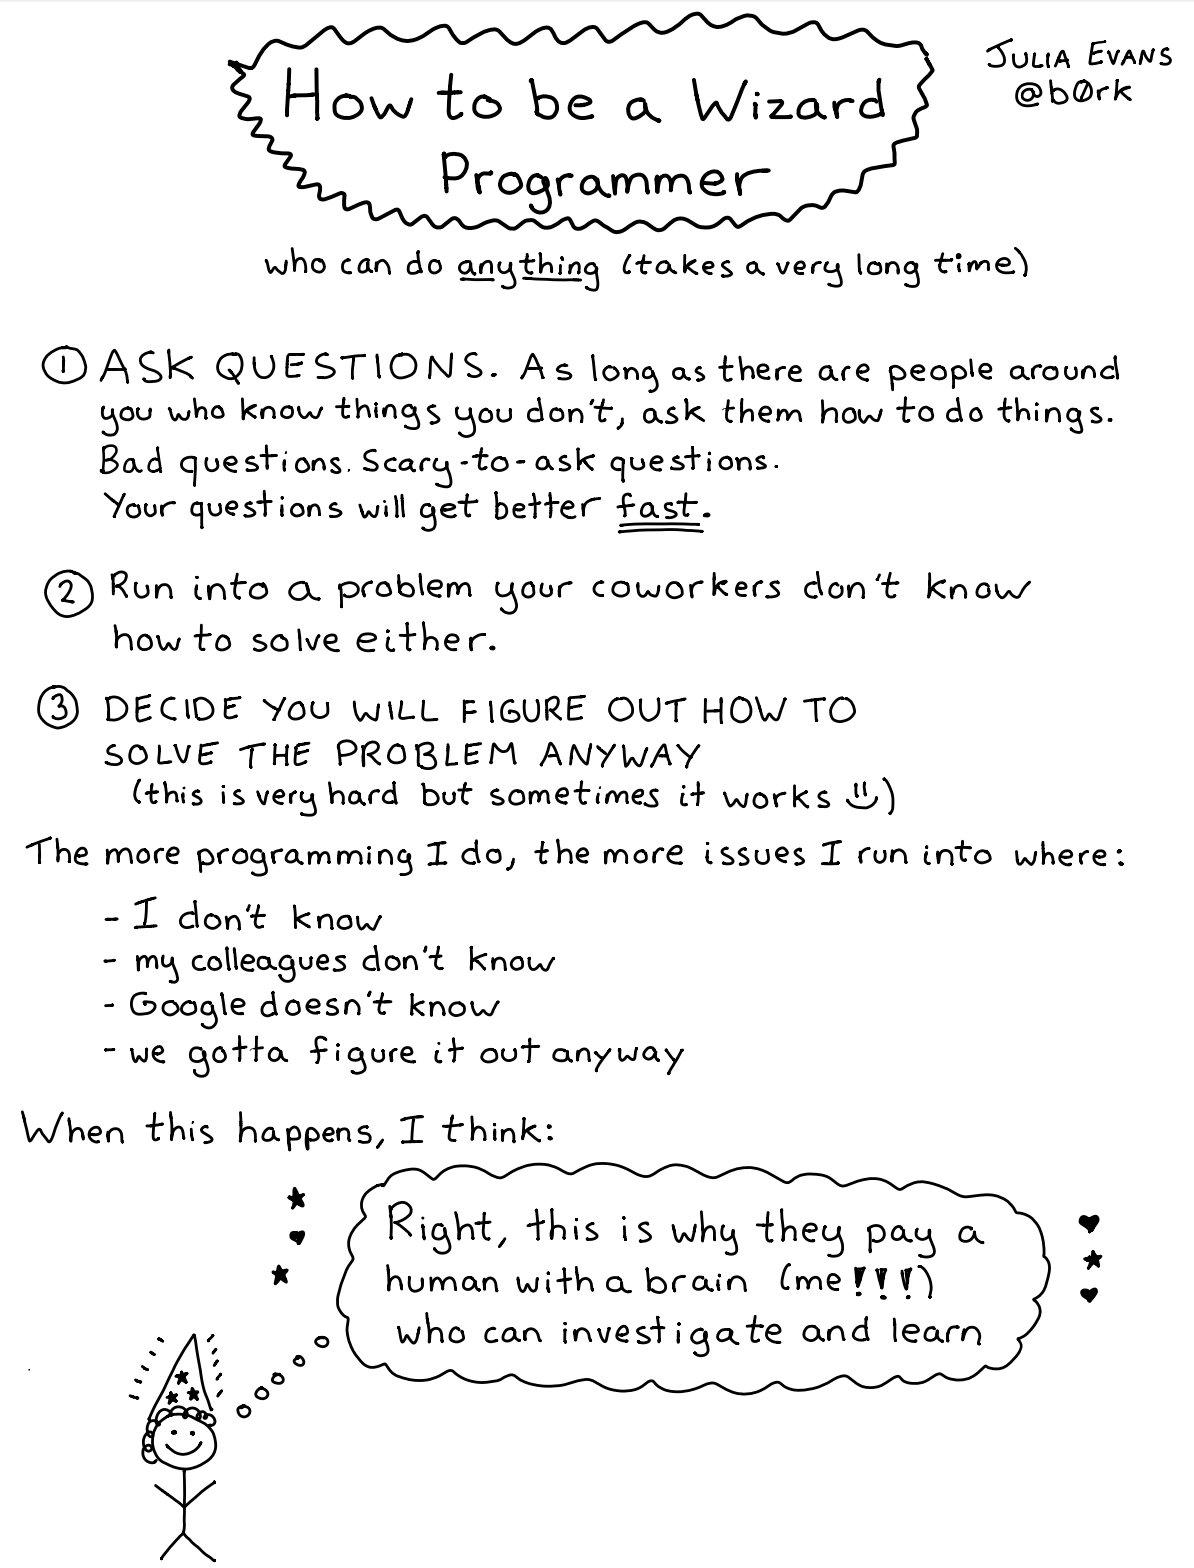 How to be a Wizard
Programmer
JULIA EVANS
@b0rk
who can do anything (takes a very long time)
① ASK QUESTIONS. As long as there are people around
you who know things you don't, ask them how to do things.
Bad questions. Scary-to-ask questions.
Your questions will get better fast.
② Run into a problem your coworkers don't know
how to solve either.
③ DECIDE YOU WILL FIGURE OUT HOW TO
SOLVE THE PROBLEM ANYWAY
(this is very hard but sometimes it works :))
The more programming I do, the more issues I run into where:
- I don't know
- my colleagues don't know
- Google doesn't know
- we gotta figure it out anyway
When this happens, I think:
Right, this is why they pay a
human with a brain (me!!!)
who can investigate and learn